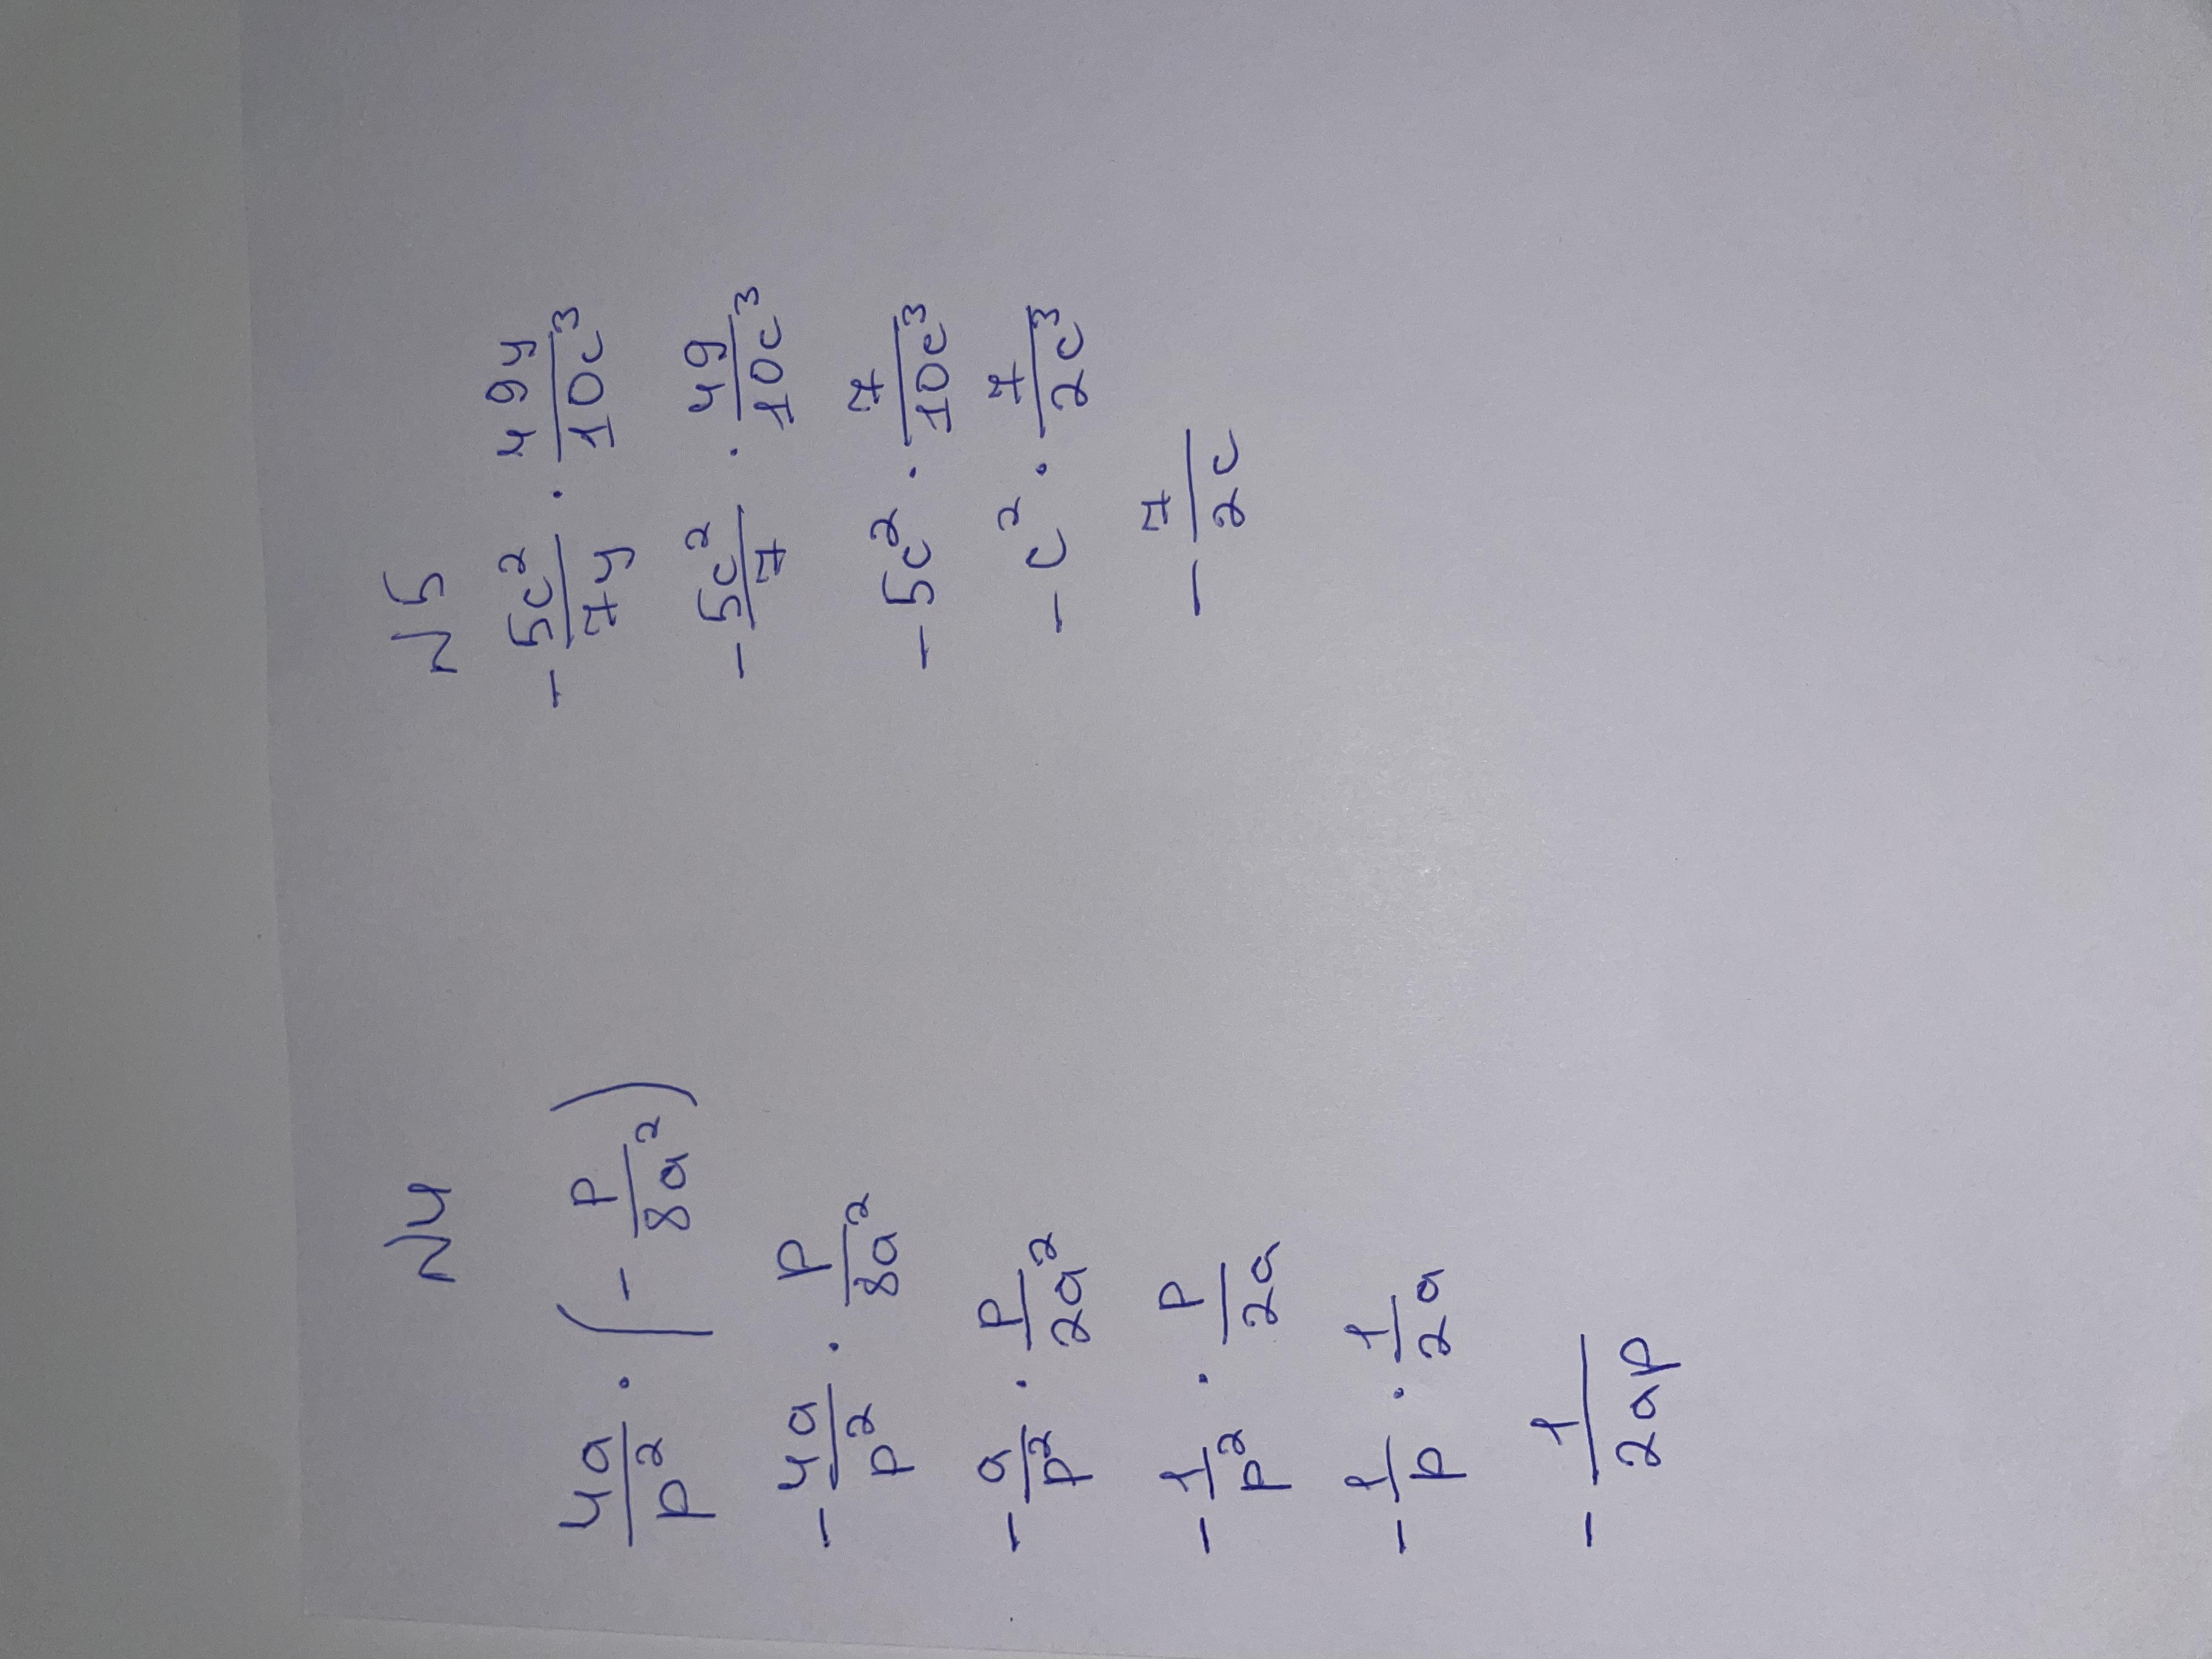 N4
4a/p² · (- p/8a²)
- 4a/p² · p/8a²
- a/p² · p/2a²
- 1/p² · p/2a
- 1/p · 1/2a
- 1/2ap
N5
- 5c²/7y · 49y/10c³
- 5c²/7 · 49/10c³
- 5c² · 7/10c³
- c² · 7/2c³
- 7/2c